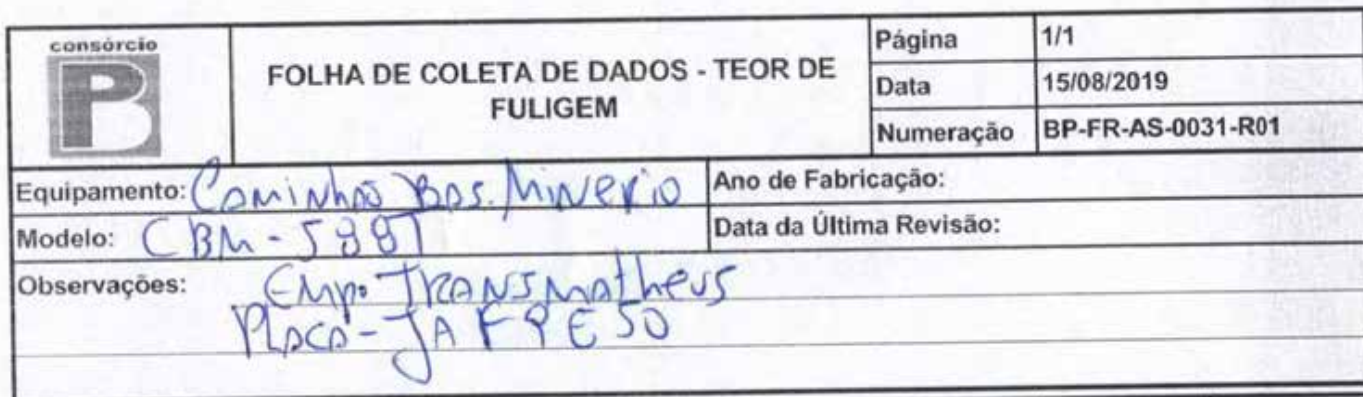 consórcio
PB
FOLHA DE COLETA DE DADOS - TEOR DE
FULIGEM
Página 1/1
Data 15/08/2019
Numeração BP-FR-AS-0031-R01
Equipamento: Caminhão Bas. Minerio
Ano de Fabricação:
Modelo: CBM-
Data da Última Revisão:
Observações: Emp. Transmatheus
Placa-